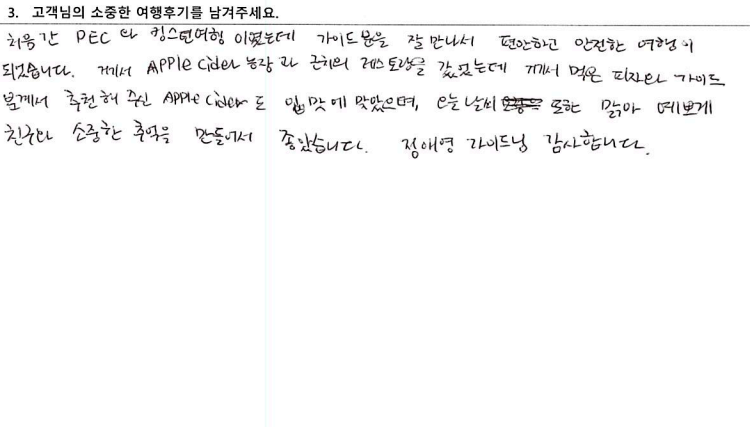 3. 고객님의 소중한 여행후기를 남겨주세요.
처음간 PEC 와 킹스턴여행 이였는데 가이드분을 잘 만나서 편안하고 안전한 여행이
되었습니다. 거기서 Apple Cider 농장과 근처의 레스토랑을 갔었는데 거기서 먹은 피자와 가이드
분께서 추천해 주신 Apple Cider도 입맛에 맞았으며, 오늘 날씨 또한 맑아 예쁘게
친구와 소중한 추억을 만들어서 좋았습니다. 정애영 가이드님 감사합니다.